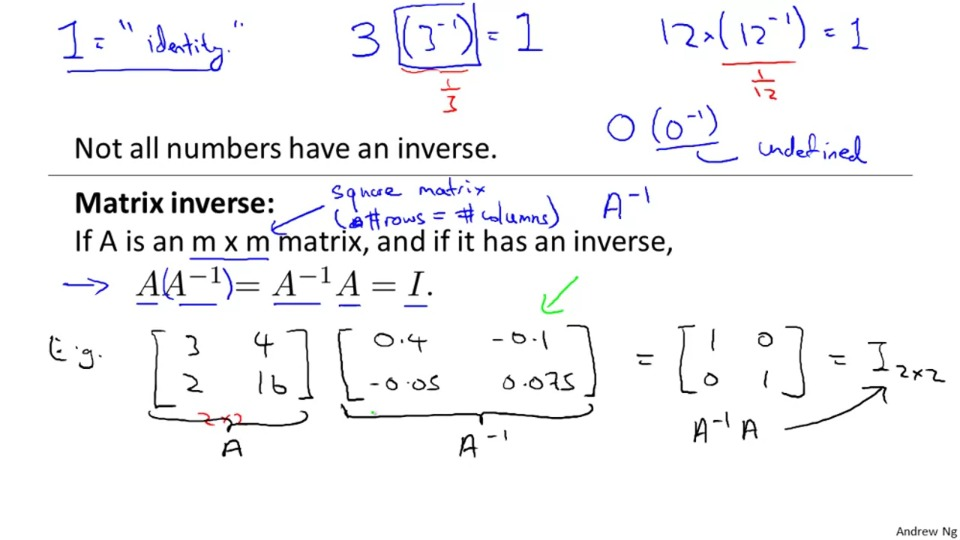 1 = "identity." 3 (3⁻¹) = 1 12×(12⁻¹) = 1
1/3 1/12
0 (0⁻¹) undefined
Not all numbers have an inverse.
Matrix inverse: square matrix A⁻¹
(#rows = #columns)
If A is an m x m matrix, and if it has an inverse,
→ A(A⁻¹) = A⁻¹ A = I.
E.g. [3 4] [0.4 -0.1] = [1 0] = I 2×2
[2 16] [-0.05 0.075] [0 1]
2×2
A A⁻¹ A⁻¹ A
Andrew Ng